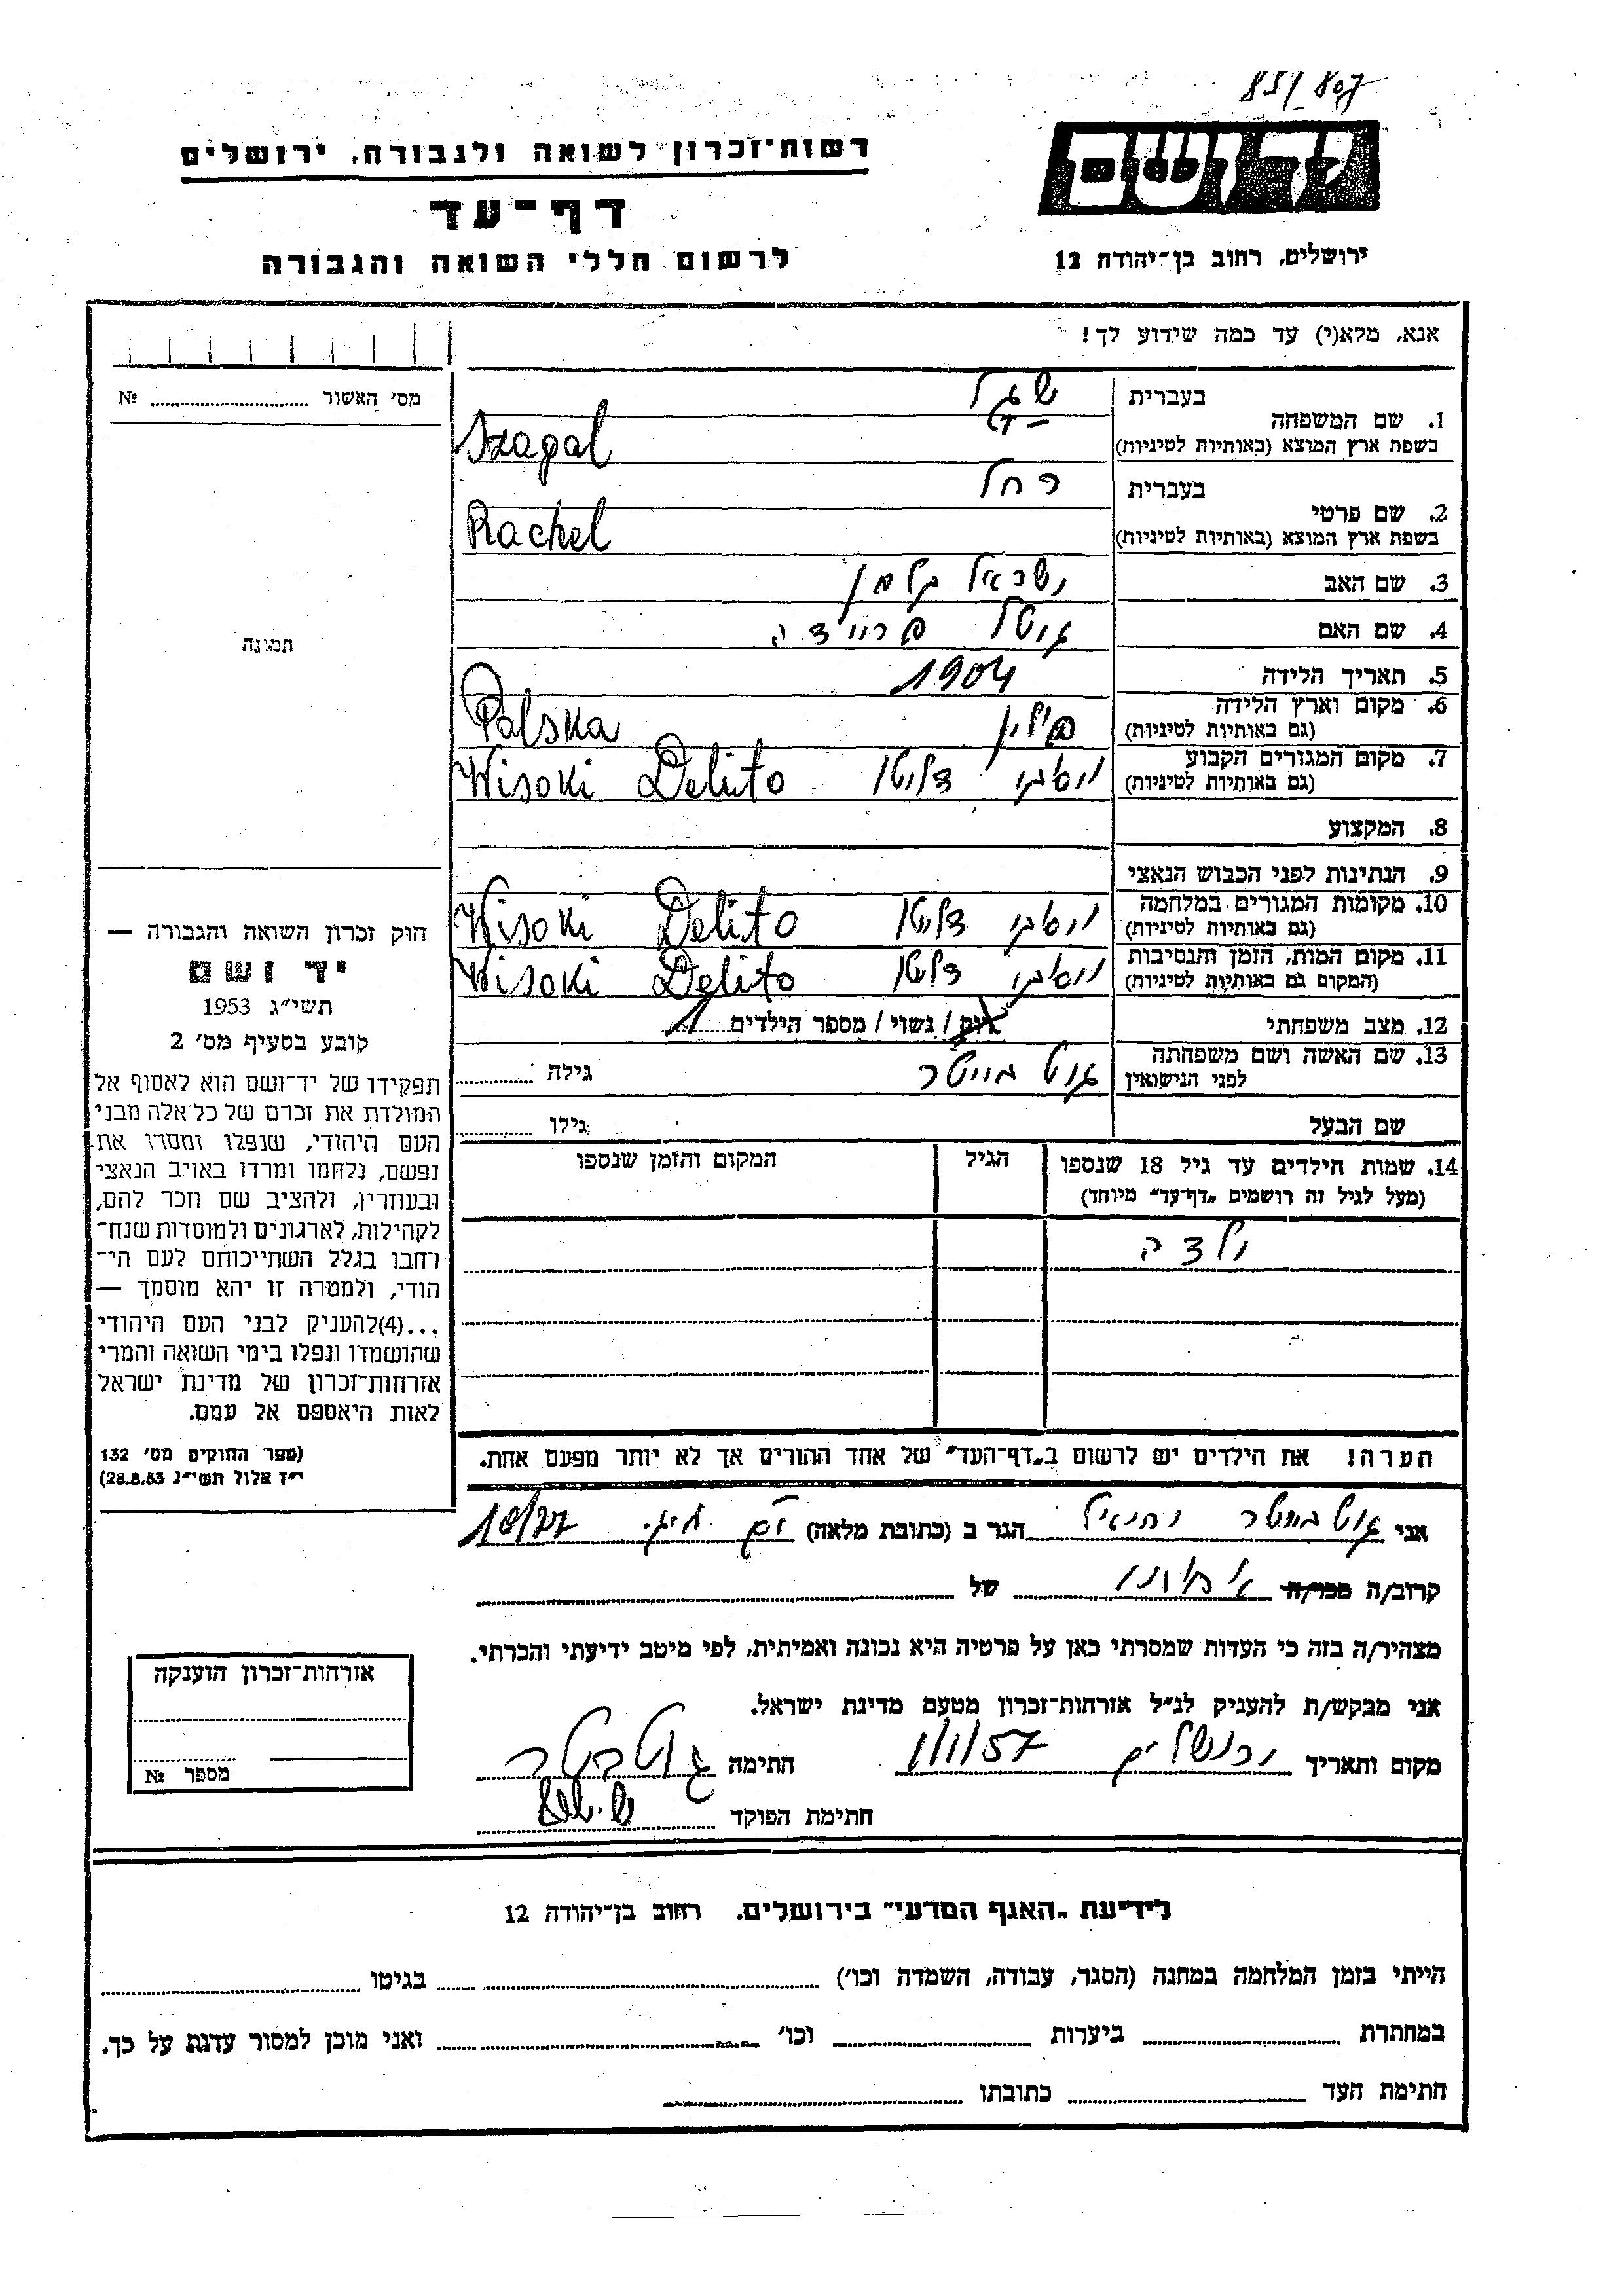 85/807
יד ושם
רשות־זכרון לשואה ולגבורה, ירושלים
דף־עד
ירושלים, רחוב בן־יהודה 12
לרשום חללי השואה והגבורה
אנא, מלא(י) עד כמה שידוע לך!
מס׳ האשור ........ №
1. שם המשפחה
בעברית שגל
בשפת ארץ המוצא (באותיות לטיניות) Szagal
2. שם פרטי
בעברית רחל
בשפת ארץ המוצא (באותיות לטיניות) Rachel
3. שם האב ישראל קלמן
4. שם האם
תמונה
5. תאריך הלידה 1904
6. מקום וארץ הלידה
(גם באותיות לטיניות) פולין Polska
7. מקום המגורים הקבוע
(גם באותיות לטיניות) ויסוקי דליטו Wisoki Delito
8. המקצוע
9. הנתינות לפני הכבוש הנאצי
10. מקומות המגורים במלחמה
(גם באותיות לטיניות) ויסוקי דליטו Wisoki Delito
11. מקום המות, הזמן והנסיבות
(המקום גם באותיות לטיניות) ויסוקי דליטו Wisoki Delito
12. מצב משפחתי רווק / נשוי / מספר הילדים 1
13. שם האשה ושם משפחתה
לפני הנישואין גוטבויטר גילה ........
שם הבעל גילו ........
14. שמות הילדים עד גיל 18 שנספו הגיל המקום והזמן שנספו
(מעל לגיל זה רושמים „דף־עד” מיוחד)
ילדה
חוק זכרון השואה והגבורה —
יד ושם
תשי״ג 1953
קובע בסעיף מס׳ 2
תפקידו של יד־ושם הוא לאסוף אל
המולדת את זכרם של כל אלה מבני
העם היהודי, שנפלו ומסרו את
נפשם, נלחמו ומרדו באויב הנאצי
ובעוזריו, ולהציב שם וזכר להם,
לקהילות, לארגונים ולמוסדות שנח־
רבו בגלל השתייכותם לעם הי־
הודי, ולמטרה זו יהא מוסמך —
...(4)להעניק לבני העם היהודי
שהושמדו ונפלו בימי השואה והמרי
אזרחות־זכרון של מדינת ישראל
לאות היאספם אל עמם.
(ספר החוקים מס׳ 132
י״ז אלול תשי״ג 28.8.53)
הערה! את הילדים יש לרשום ב„דף־העד” של אחד ההורים אך לא יותר מפעם אחת.
אני גוטבויטר יחיאל הגר ב (כתובת מלאה) 18/77
קרוב/ה מכר/ה של
מצהיר/ה בזה כי העדות שמסרתי כאן על פרטיה היא נכונה ואמיתית, לפי מיטב ידיעתי והכרתי.
אני מבקש/ת להעניק לנ״ל אזרחות־זכרון מטעם מדינת ישראל.
מקום ותאריך ירושלים 1/1/57 חתימה
חתימת הפוקד
אזרחות־זכרון הוענקה
מספר №
לידיעת „האגף המדעי” בירושלים, רחוב בן־יהודה 12
הייתי בזמן המלחמה במחנה (הסגר, עבודה, השמדה וכו׳) ........ בגיטו ........
במחתרת ........ ביערות ........ וכו׳ ........ ואני מוכן למסור עדות על כך.
חתימת העד ........ כתובתו ........